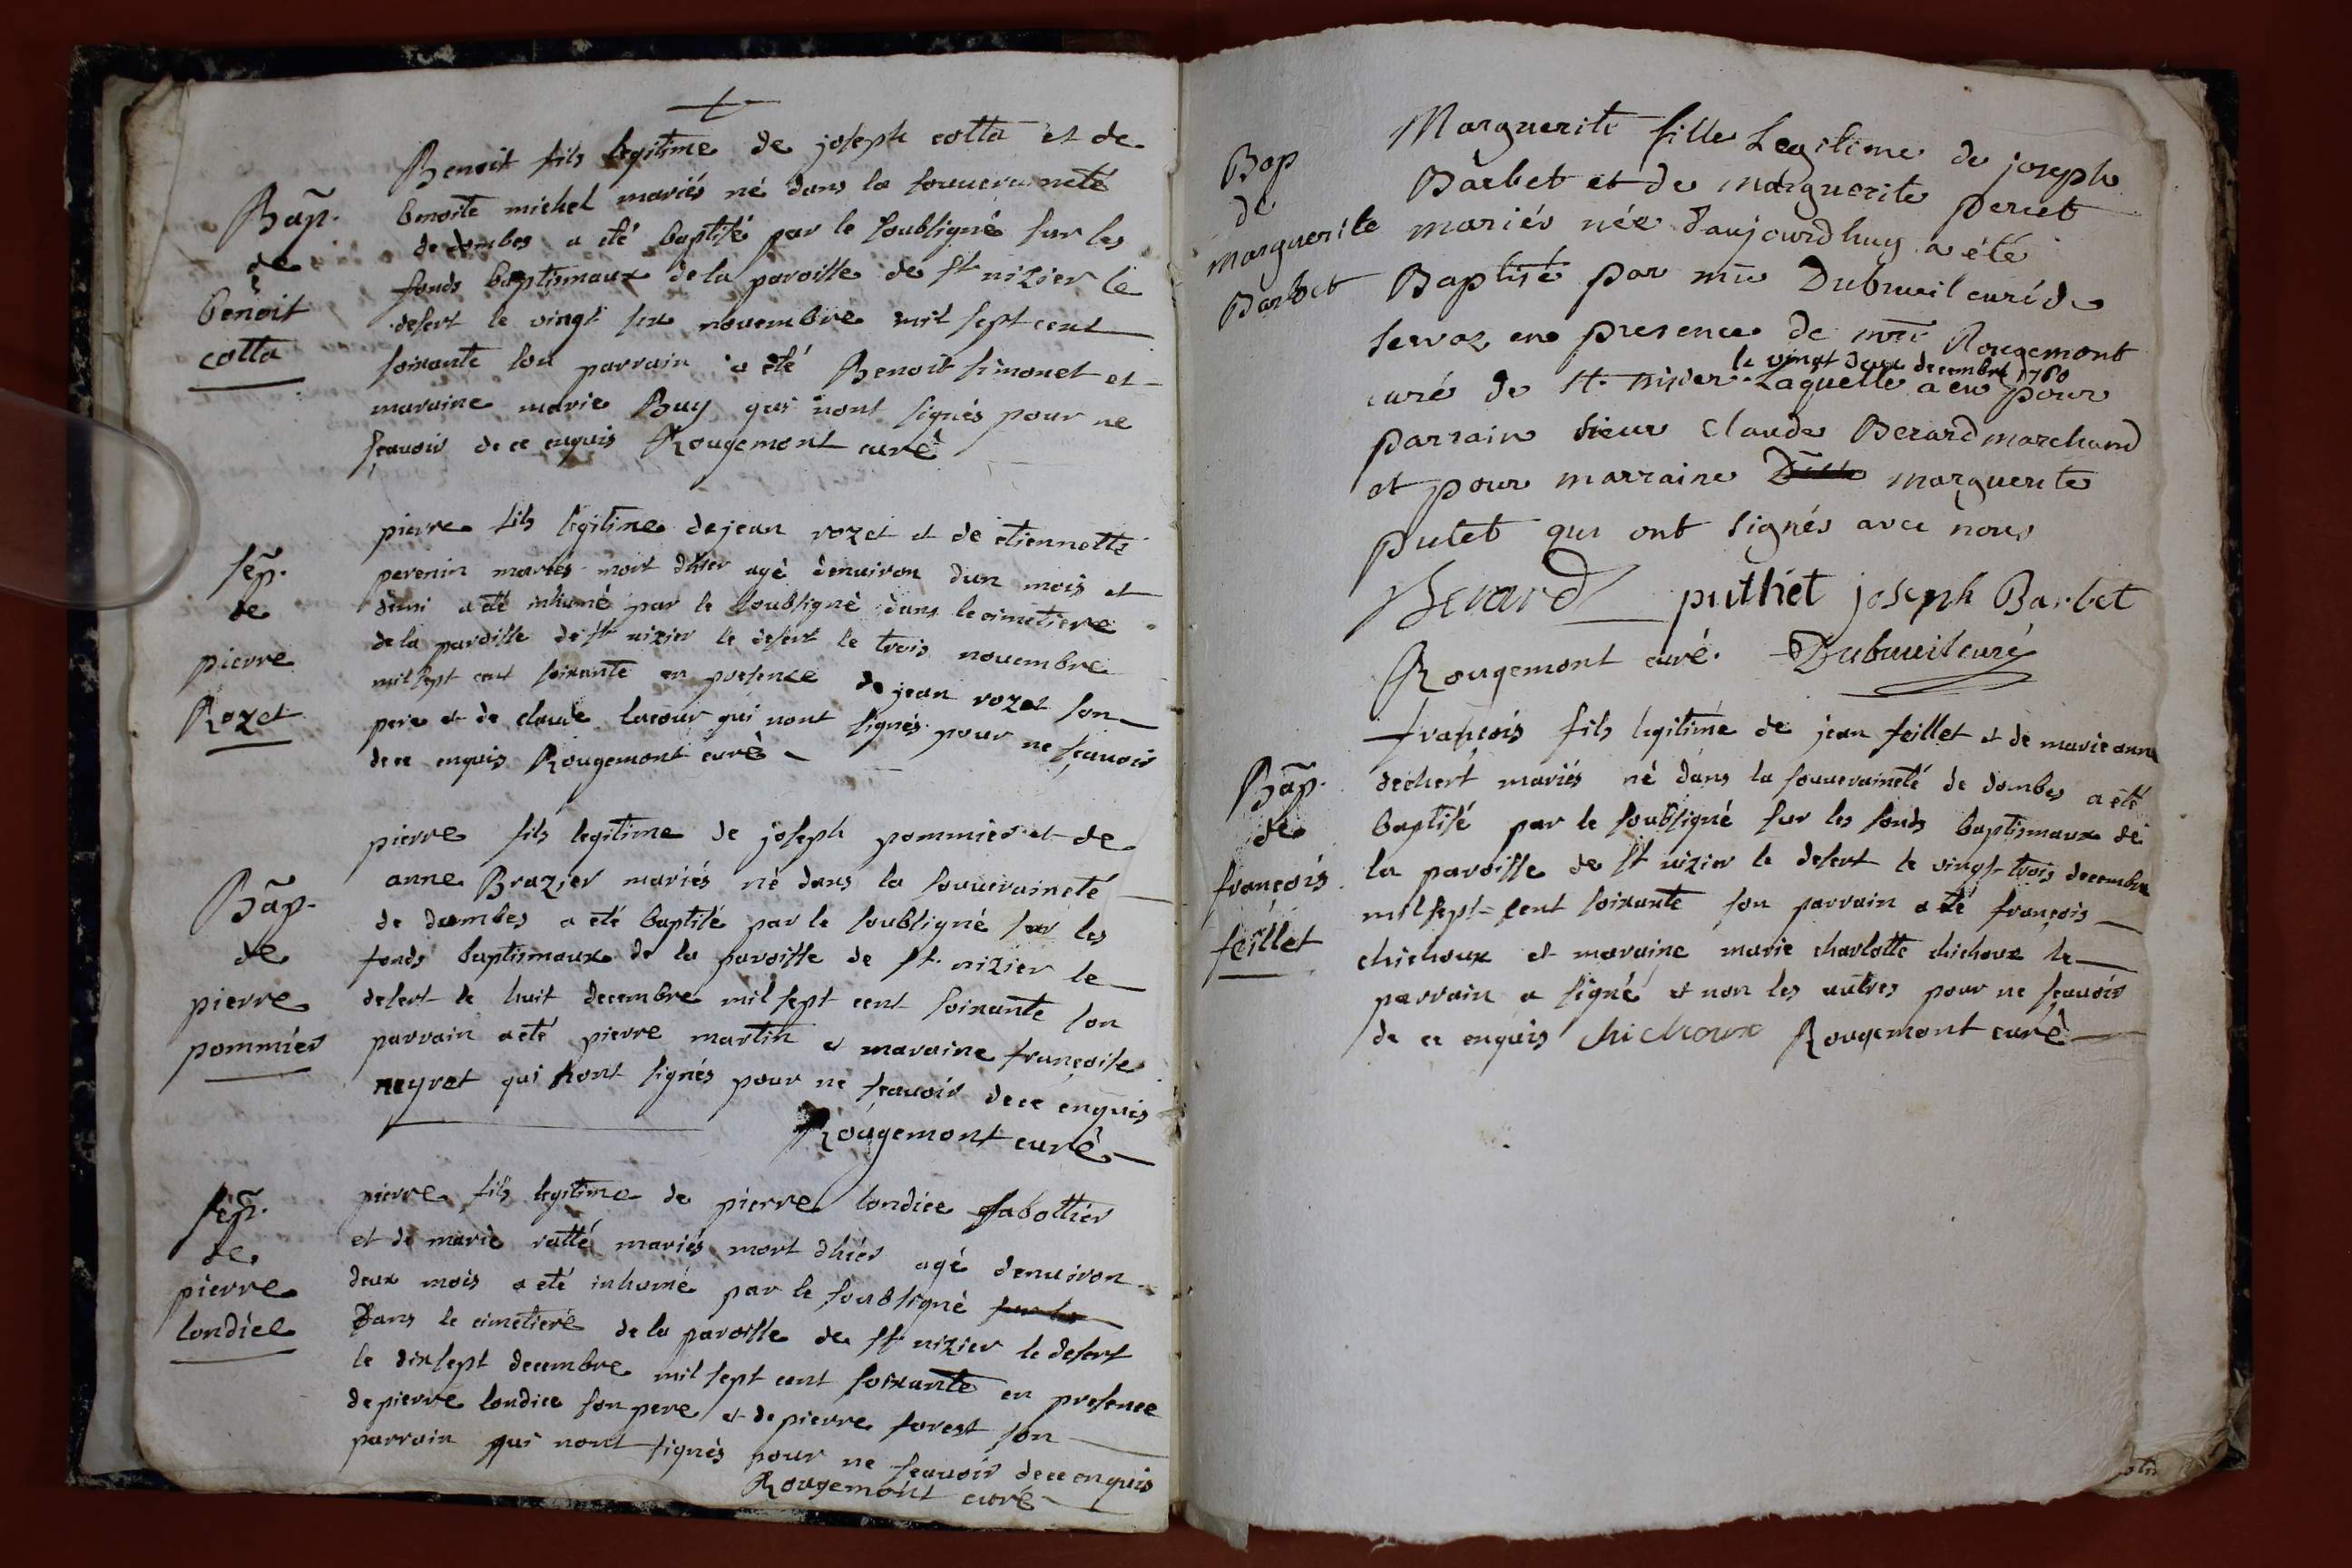 Bap.
de
benoit
cotta
Benoit fils legitime de joseph cotta et de
benoite michel mariés né dans la souveraineté
de dombes a eté baptisé par le soubsigné sur les
fonds baptismaux de la paroisse de st nizier le
desert le vingt six novembre mil sept cent
soixante son parrain a été Benoit simonet et
maraine marie Buy qui nont signés pour ne
sçavoir de ce enquis Rougemont curé
sep.
de
pierre
Rozet
pierre fils legitime de jean rozet et de etiennette
perenin mariés mort d'hier agé denviron dun mois et
demi a eté inhumé par le soubsigné dans le cimetiere
de la paroisse de st nizier le desert le trois novembre
mil sept cent soixante en presence de jean rozet son
pere et de claude lacour qui nont signés pour ne sçavoir
de ce enquis Rougemont curé
Bap.
de
pierre
pommier
pierre fils legitime de joseph pommier et de
anne Brazier mariés né dans la souveraineté
de dombes a eté baptisé par le soubsigné sur les
fonds baptismaux de la paroisse de st nizier le
desert le huit decembre mil sept cent soixante son
parrain a eté pierre martin et maraine françoise
neyret qui nont signés pour ne sçavoir de ce enquis
Rougemont curé
sep.
de
pierre
londice
pierre fils legitime de pierre londice sabottier
et de marie ratté mariés mort dhier agé denviron
deux mois a eté inhumé par le soubsigné sur les
Dans le cimetiere de la paroisse de st nizier le desert
le dix sept decembre mil sept cent soixante en presence
de pierre londice son pere et de pierre forest son
parrain qui nont signés pour ne sçavoir de ce enquis
Rougemont curé
Bap
de
marguerite
Barbet
Marguerite fille Legitime de joseph
Barbet et de marguerite percet
mariés née d'aujourdhuy a été
Baptisé par mre Dubreuil curé de
servas en presence de mre Rougemont
le vingt deux decembre 1760
curé de St. nisier Laquelle a eu pour
parrain sieur Claude Berard marchand
et pour marraine marguerite
putet qui ont signés avec nous
Berard puthet joseph Barbet
Rougemont curé. Dubreuil curé
Bap.
de
françois
feillet
françois fils legitime de jean feillet et de marie anne
dechert mariés né dans la souveraineté de dombes a été
baptisé par le soubsigné sur les fonds baptismaux de
la paroisse de st nizier le desert le vingt-trois decembre
mil sept-cent soixante son parrain a eté françois
chichoux et maraine marie charlotte chichoux le
parrain a signé et non les autres pour ne sçavoir
de ce enquis chichoux Rougemont curé